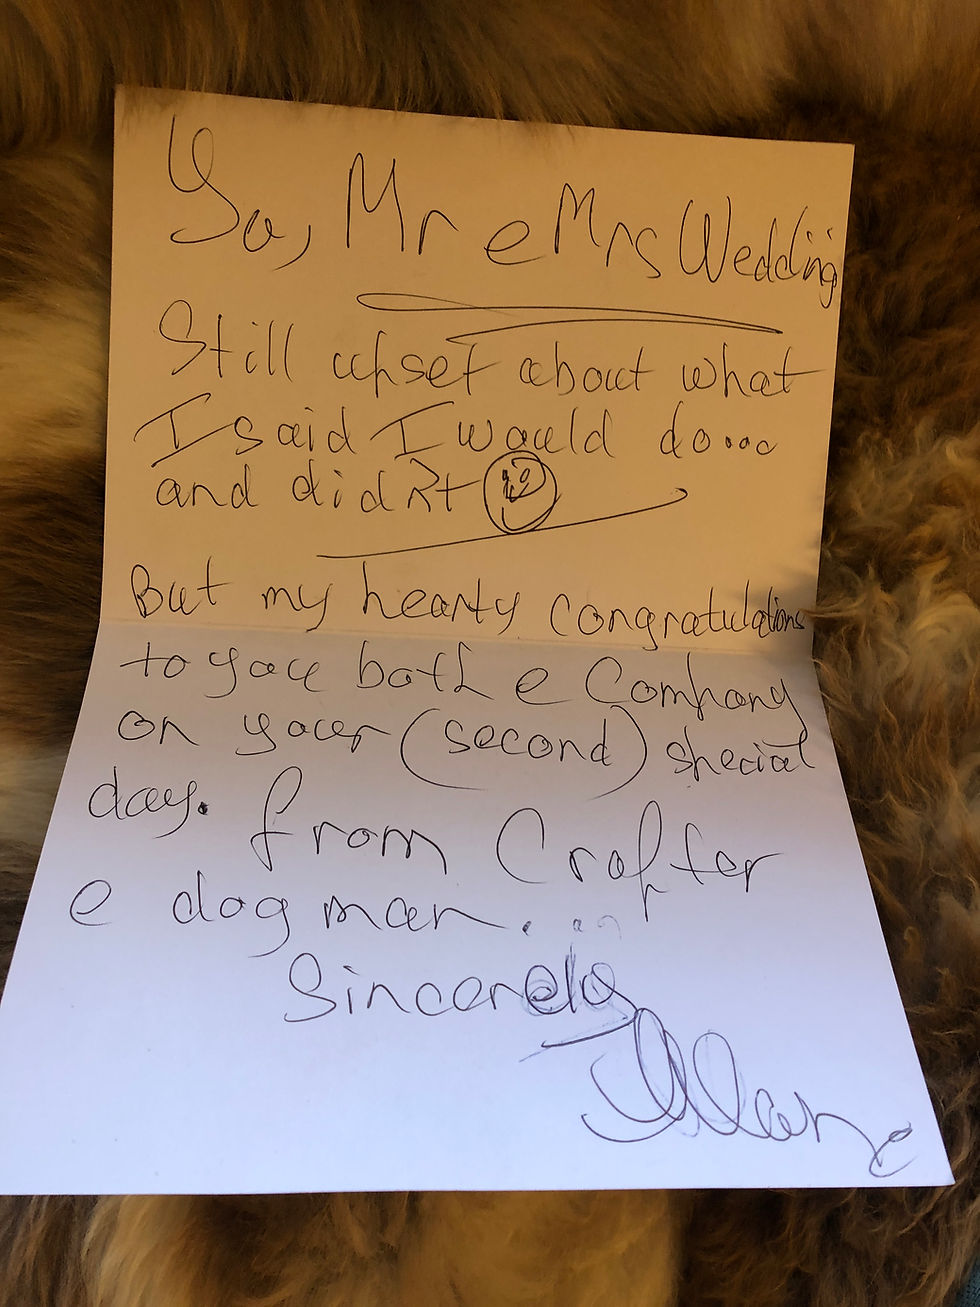 Yo, Mr e Mrs Wedding
Still upset about what
I said I would do...
and didn't
But my hearty congratulations
to you both e Company
on your (second) special
day. from Crofter
e dog man...
Sincerely
Allan.